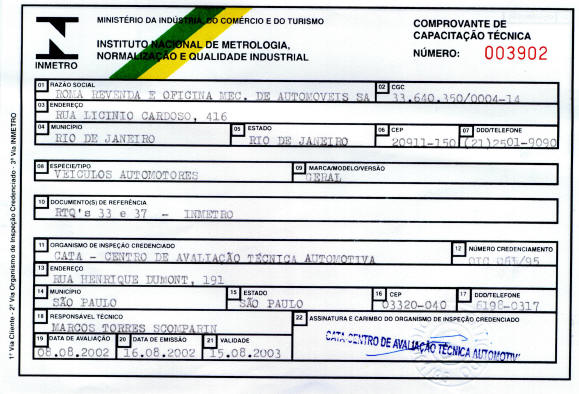 INMETRO
MINISTÉRIO DA INDÚSTRIA, DO COMÉRCIO E DO TURISMO
INSTITUTO NACIONAL DE METROLOGIA,
NORMALIZAÇÃO E QUALIDADE INDUSTRIAL
COMPROVANTE DE
CAPACITAÇÃO TÉCNICA
NÚMERO: 003902
01 RAZÃO SOCIAL
ROMA REVENDA E OFICINA MEC. DE AUTOMOVEIS SA
02 CGC
33.640.350/0004-14
03 ENDEREÇO
RUA LICINIO CARDOSO, 416
04 MUNICÍPIO
RIO DE JANEIRO
05 ESTADO
RIO DE JANEIRO
06 CEP
20911-150
07 DDD/TELEFONE
(21)2501-9090
08 ESPECIE/TIPO
VEICULOS AUTOMOTORES
09 MARCA/MODELO/VERSÃO
GERAL
10 DOCUMENTO(S) DE REFERÊNCIA
RTQ's 33 e 37 - INMETRO
11 ORGANISMO DE INSPEÇÃO CREDENCIADO
CATA - CENTRO DE AVALIAÇÃO TÉCNICA AUTOMOTIVA
12 NÚMERO CREDENCIAMENTO
13 ENDEREÇO
RUA HENRIQUE DUMONT, 191
14 MUNICÍPIO
SÃO PAULO
15 ESTADO
SÃO PAULO
16 CEP
03320-040
17 DDD/TELEFONE
6198-0317
18 RESPONSÁVEL TÉCNICO
MARCOS TORRES SCOMPARIN
19 DATA DE AVALIAÇÃO
08.08.2002
20 DATA DE EMISSÃO
16.08.2002
21 VALIDADE
15.08.2003
22 ASSINATURA E CARIMBO DO ORGANISMO DE INSPEÇÃO CREDENCIADO
CATA-CENTRO DE AVALIAÇÃO TÉCNICA AUTOMOTIV
1ª Via Cliente - 2ª Via Organismo de Inspeção Credenciado - 3ª Via INMETRO